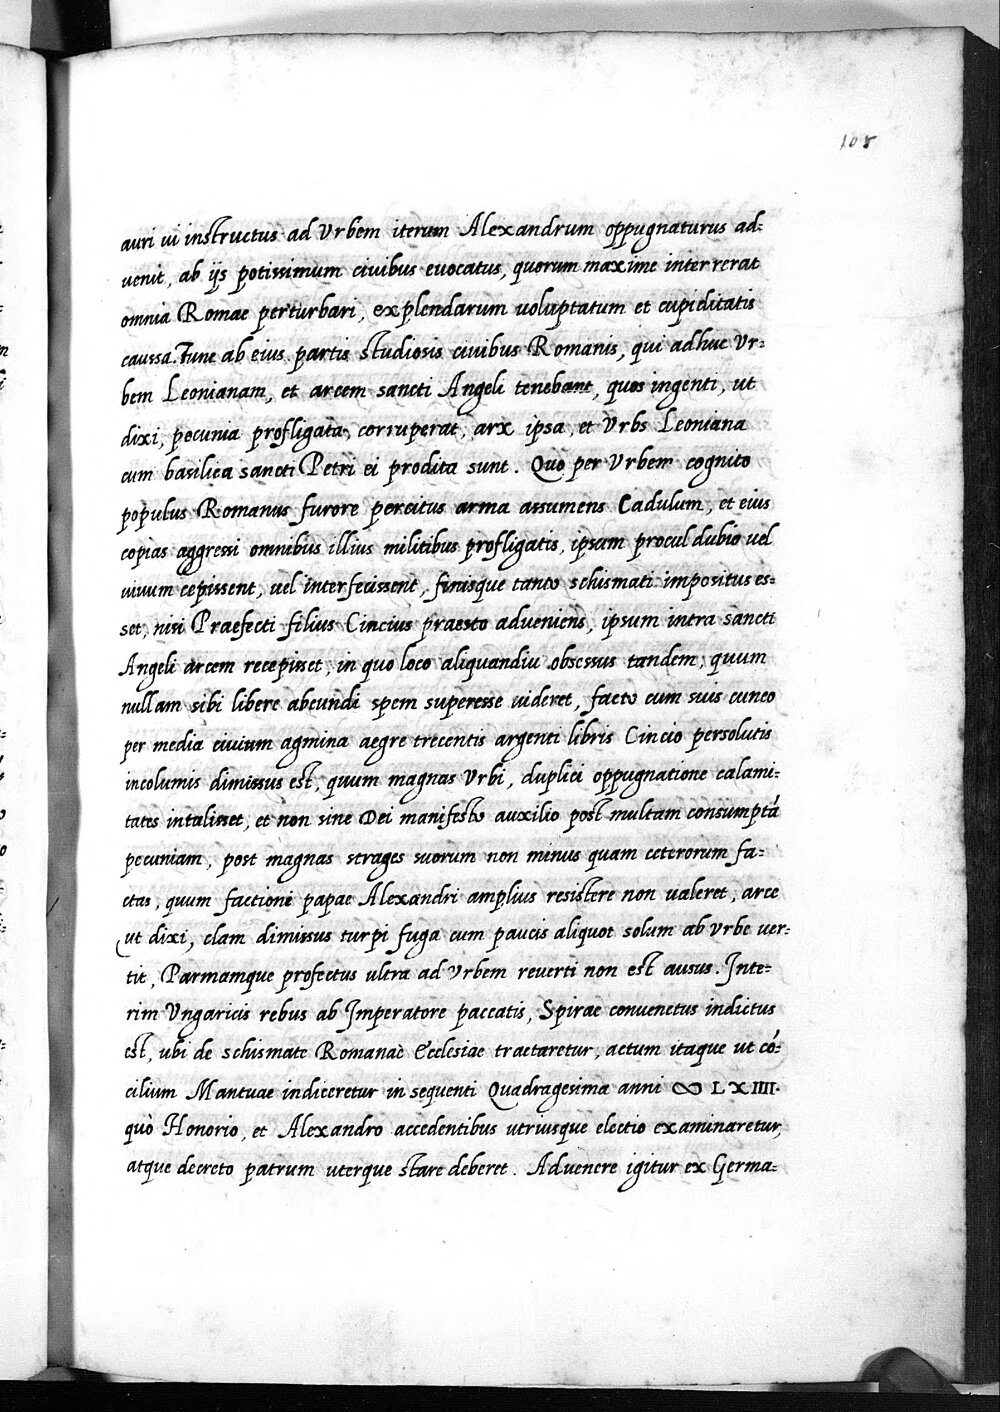 105
auri ui instructus ad Vrbem iterum Alexandrum oppugnaturus ad-
uenit, ab ijs potissimum ciuibus euocatus, quorum maxime intererat
omnia Romae perturbari, explendarum uoluptatum et cupiditatis
caussa. Tunc ab eius partis studiosis ciuibus Romanis, qui adhuc Vr-
bem Leonianam, et arcem sancti Angeli tenebant, quos ingenti, ut
dixi, pecunia profligata, corruperat, arx ipsa, et Vrbs Leoniana
cum basilica sancti Petri ei prodita sunt. Quo per Vrbem cognito
populus Romanus furore percitus arma assumens Cadulum, et eius
copias aggressi omnibus illius militibus profligatis, ipsum procul dubio uel
uiuum cepissent, uel interfecissent, finisque tanto schismati impositus es-
set, nisi Praefecti filius Cincius praesto adueniens, ipsum intra sancti
Angeli arcem recepisset, in quo loco aliquandiu obsessus tandem, quum
nullam sibi libere abeundi spem superesse uideret, facto cum suis cuneo
per media ciuium agmina aegre trecentis argenti libris Cincio persolutis
incolumis dimissus est, quum magnas Vrbi, duplici oppugnatione calami-
tates intulisset, et non sine Dei manifesto auxilio post multam consumptā
pecuniam, post magnas strages suorum non minus quam ceterorum fa-
ctas, quum factioni papae Alexandri amplius resistere non ualeret, arce
ut dixi, clam dimissus turpi fuga cum paucis aliquot solum ab Vrbe uer-
tit, Parmamque profectus ultra ad Vrbem reuerti non est ausus. Inte-
rim Vngaricis rebus ab Imperatore paccatis, Spirae conuenetus indictus
est, ubi de schismate Romanae Ecclesiae tractaretur, actum itaque ut cō-
cilium Mantuae indiceretur in sequenti Quadragesima anni ∞ L X IIII.
quò Honorio, et Alexandro accedentibus utriusque electio examinaretur,
atque decreto patrum uterque stare deberet. Aduenere igitur ex Germa-